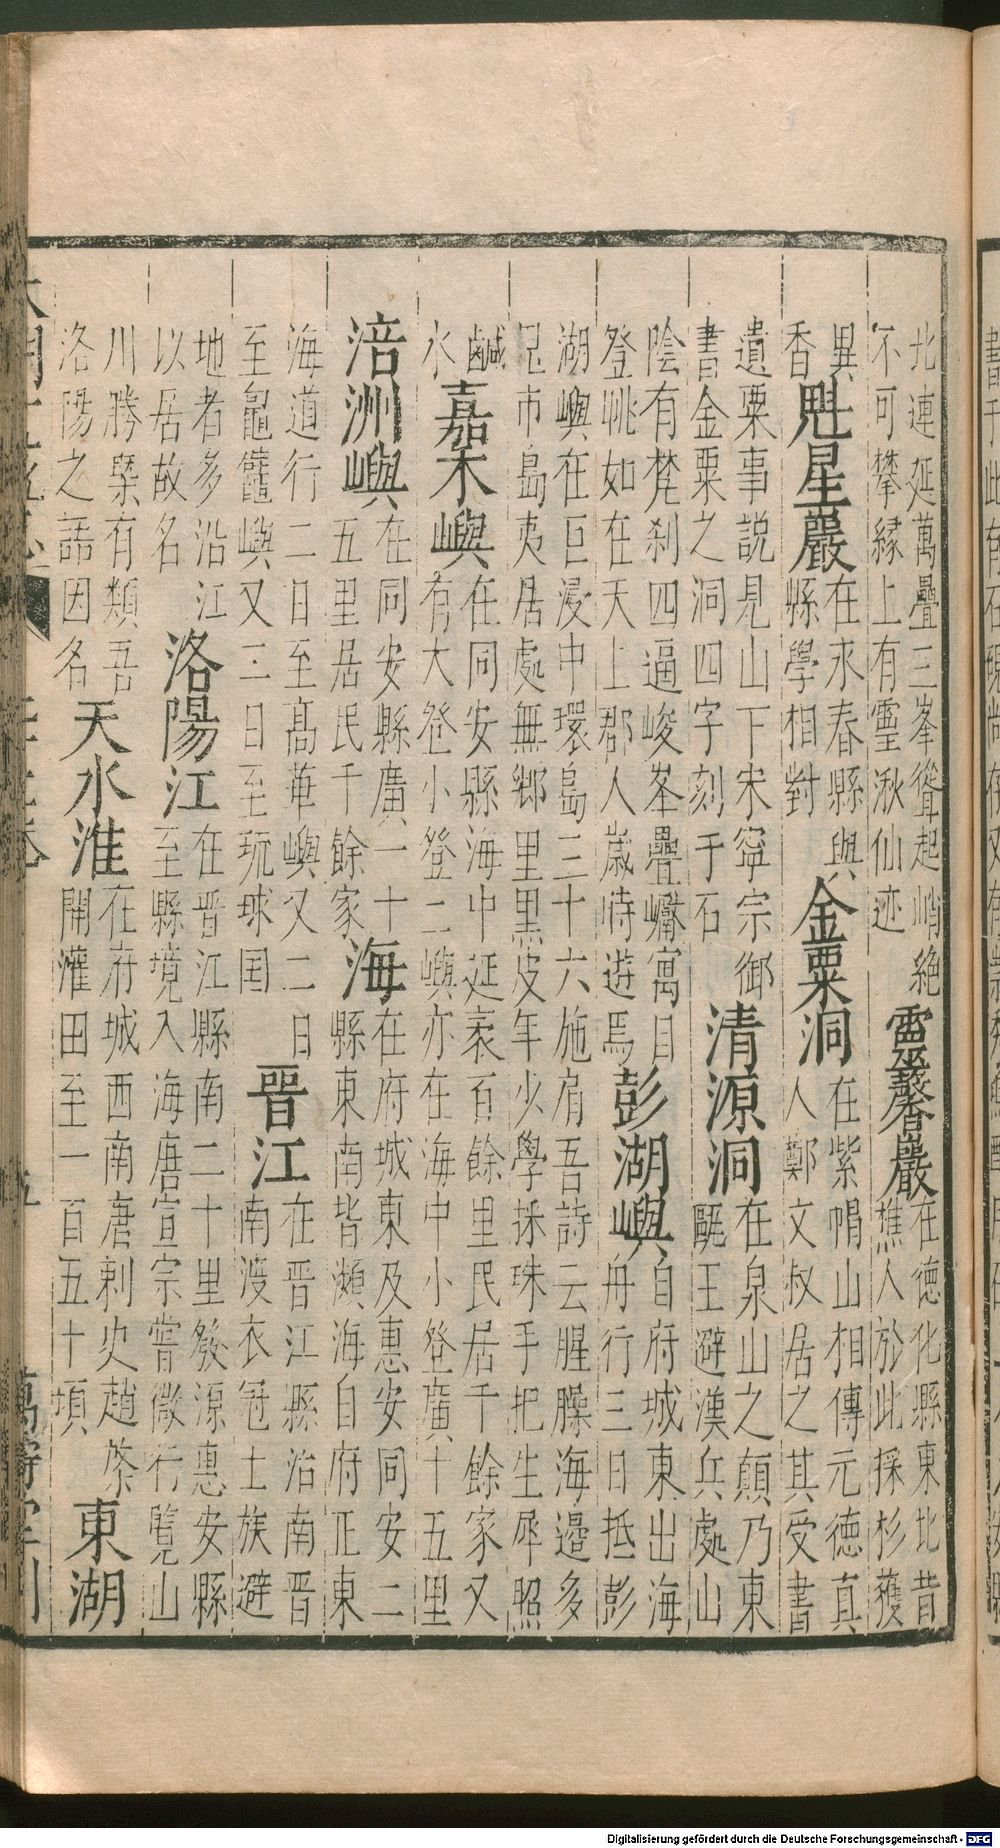 北連延萬疊三峯聳起峭絕靈馨巖在德化縣東北昔
不可攀緣上有靈湫仙迹樵人於此採杉獲
異魁星巖在永春縣與金粟洞在紫帽山相傳元德真
香縣學相對人鄭文叔居之其受書
遺粟事說見山下宋寧宗御清源洞在泉山之顛乃東
書金粟之洞四字刻于石甌王避漢兵處山
陰有梵刹四逼峻峯疊巘寓目彭湖嶼自府城東出海
登眺如在天上郡人歲時遊焉舟行三日抵彭
湖嶼在巨浸中環島三十六施肩吾詩云腥臊海邊多
鬼市島夷居處無鄉里黑皮年少學採珠手把生犀照
鹹嘉禾嶼在同安縣海中延袤百餘里民居千餘家又
水有大登小登二嶼亦在海中小登廣十五里
浯洲嶼在同安縣廣一十海在府城東及惠安同安二
五里居民千餘家縣東南皆瀕海自府正東
海道行二日至高華嶼又二日晉江在晉江縣治南晉
至鼊嶼又三日至琉球国南渡衣冠士族避
地者多沿江洛陽江在晉江縣南二十里發源惠安縣
以居故名至縣境入海唐宣宗嘗微行覽山
川勝槩有類吾天水淮在府城西南唐刺史趙棨東
洛陽之語因名開灌田至一百五十頃湖
萬壽堂刊
Digitalisierung gefördert durch die Deutsche Forschungsgemeinschaft - DFG